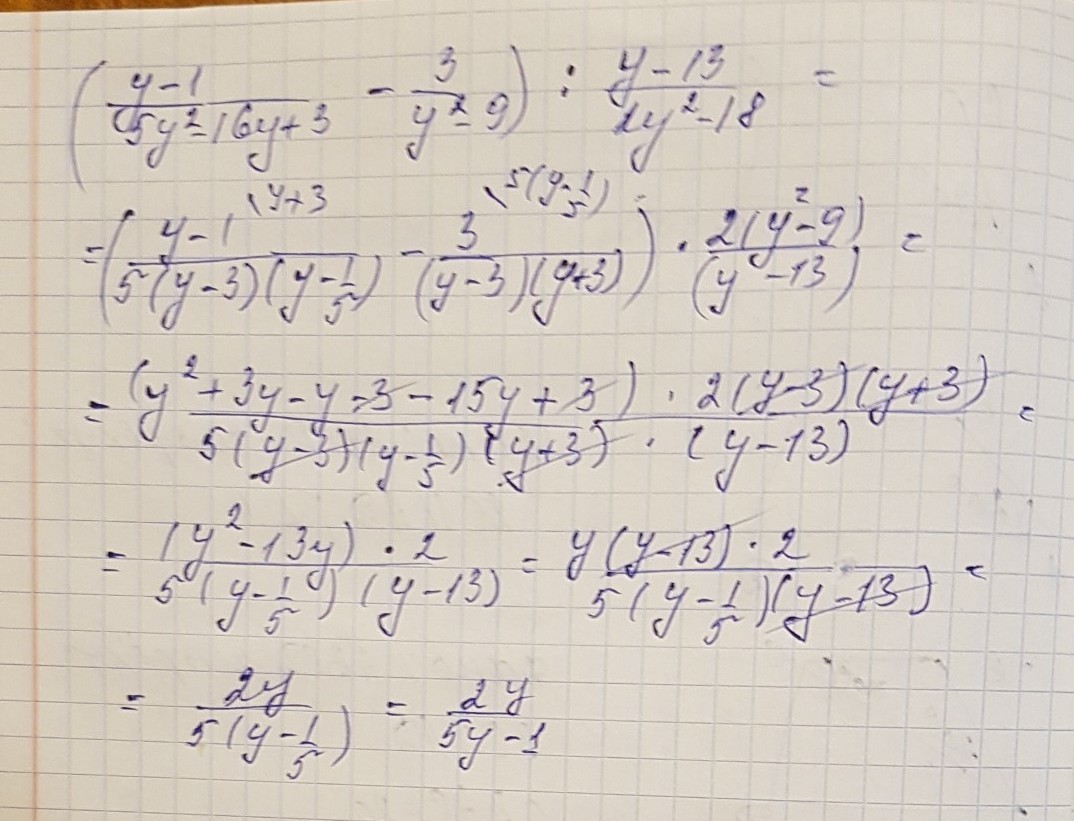 ( (y-1)/(5y²-16y+3) - 3/(y²-9) ) : (y-13)/(2y²-18) =
= ( (y-1)/(5(y-3)(y-1/5)) \y+3 - 3/((y-3)(y+3)) \5(y-1/5) ) · 2(y²-9)/(y-13) =
= (y²+3y-y-3-15y+3) · 2(y-3)(y+3) / 5(y-3)(y-1/5)(y+3) · (y-13) =
= (y²-13y) · 2 / 5(y-1/5)(y-13) = y(y-13) · 2 / 5(y-1/5)(y-13) =
= 2y/5(y-1/5) = 2y/5y-1